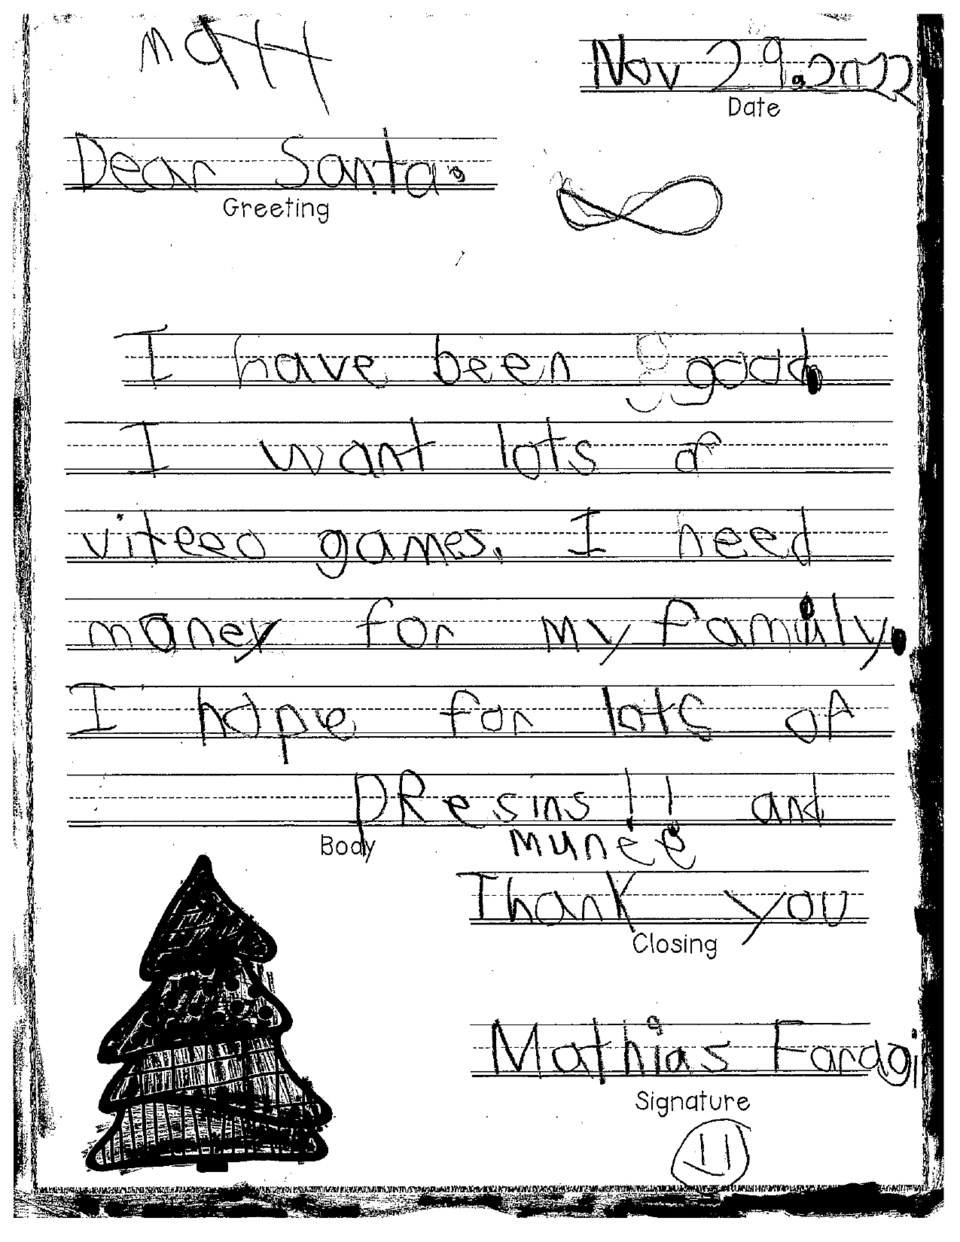 Matt
Nov 29.2022
Date
Dear Santa.
Greeting
I have been good.
I want lots of
viteeo games. I need
money for my family.
I hope for lots of
PResins!! and
Body
munee
Thank you
Closing
Mathias Fardoj
Signature